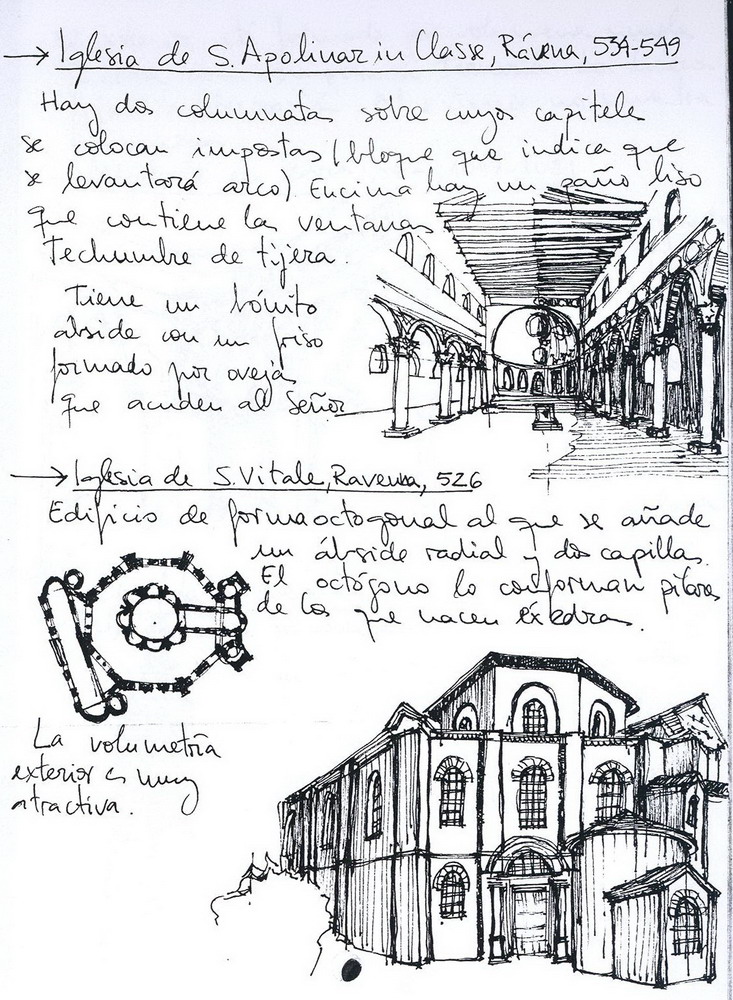 → Iglesia de S. Apolinar in Classe, Rávena, 534-549
Hay dos columnatas sobre cuyos capiteles
se colocan impostas (bloque que indica que
se levantará arco). Encima hay un paño liso
que contiene las ventanas
Techumbre de tijera.
Tiene un bónito
ábside con un friso
formado por ovejas
que acuden al Señor
→ Iglesia de S. Vitale, Ravenna, 526
Edificio de forma octogonal al que se añade
un ábside radial y dos capillas.
El octógono lo conforman pilares
de los que nacen éxedras.
La volumetría
exterior es muy
atractiva.